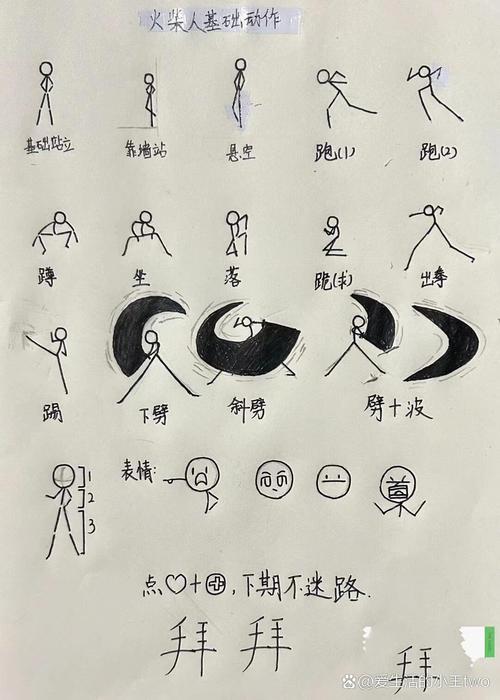 火柴人基础动作
基础站立 靠墙站 悬空 跑(1) 跑(2)
蹲 坐 落 跪(求) 出拳
踢 下劈 斜劈 劈+波
表情:
1
2
3
首
点♡+⊕,下期不迷路.
拜 拜 拜
@爱生活的小王two